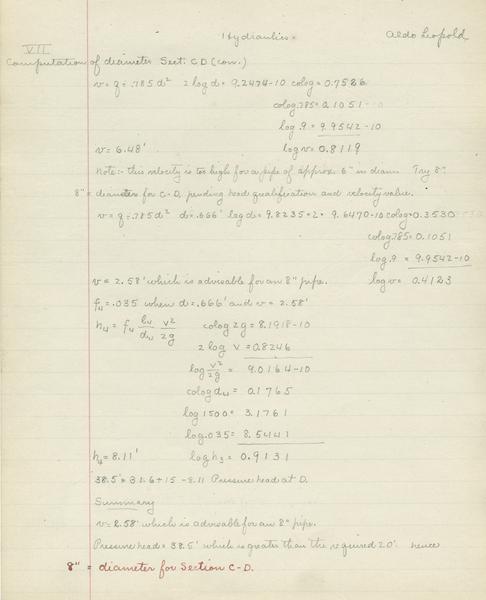 Hydraulics. Aldo Leopold
VII
Computation of diameter Sect. CD (con.)
v = q ÷ .785 d² 2 log d = 9.2474-10 colog = 0.7526
colog .785 = 0.1051
log .9 = 9.9542-10
v = 6.48' log v = 0.8119
Note:- this velocity is too high for a pipe of approx. 6" in diam. Try 8".
8" = diameter for C-D, pending head qualification and velocity value.
v = q ÷ .785 d² d = .666' log d = 9.8235 × 2 = 9.6470-10 colog = 0.3530
colog .785 = 0.1051
log .9 = 9.9542-10
v = 2.58' which is advisable for an 8" pipe. log v = 0.4123
f₄ = .035 when d = .666' and v = 2.58'
h₄ = f₄ l₄/d₄ v²/2g colog 2g = 8.1918-10
2 log v = 0.8246
log v²/2g = 9.0164-10
colog d₄ = 0.1765
log 1500 = 3.1761
log .035 = 8.5441
h₄ = 8.11' log h₃ = 0.9131
38.5' = 31.6 + 15 - 8.11 Pressure head at D.
Summary
v = 2.58' which is advisable for an 8" pipe.
Pressure head = 38.5' which is greater than the required 20'. hence
8" = diameter for Section C-D.